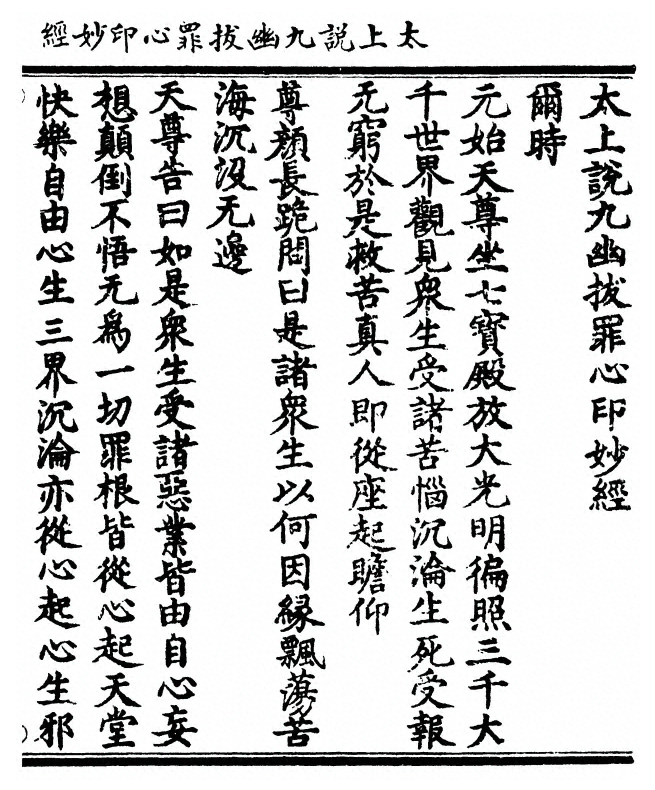 太上說九幽拔罪心印妙經
太上說九幽拔罪心印妙經
爾時
元始天尊坐七寶殿放大光明徧照三千大
千世界觀見衆生受諸苦惱沉淪生死受報
无窮於是救苦真人即從座起瞻仰
尊顏長跪問曰是諸衆生以何因緣飄蕩苦
海沉沒无邊
天尊告曰如是衆生受諸惡業皆由自心妄
想顛倒不悟无爲一切罪根皆從心起天堂
快樂自由心生三界沉淪亦從心起心生邪